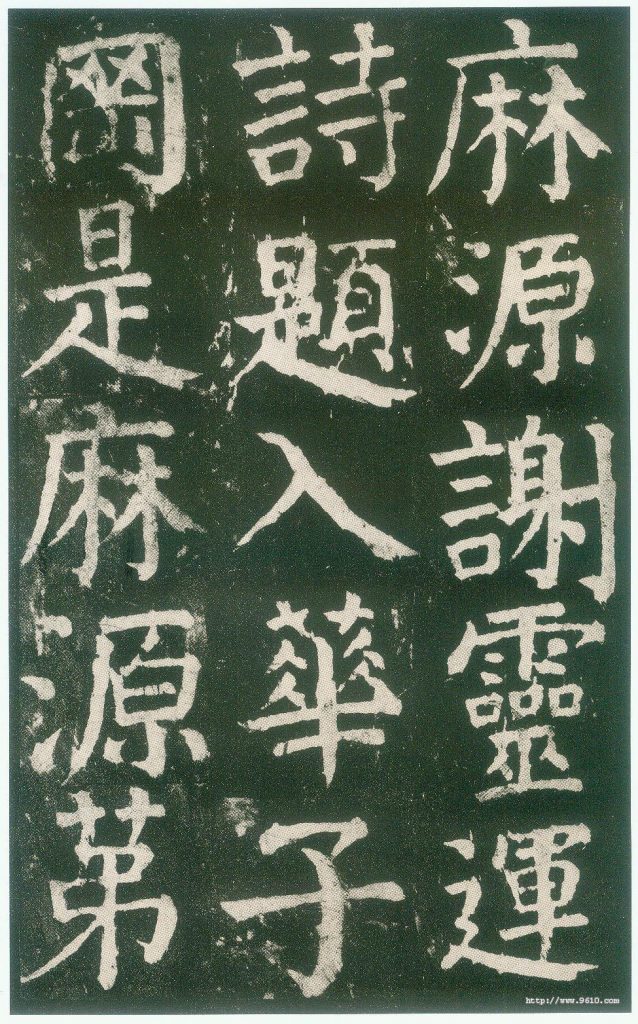 麻源謝靈運
詩題入華子
罡是麻源第
http://www.9610.com